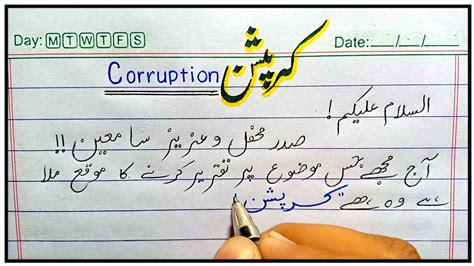 Day: M T W T F S Date: __/__/__
Corruption کرپشن
السلام علیکم!
صدر محفل و عزیز سامعین!!
آج مجھے جس موضوع پر تقریر کرنے کا موقع ملا
ہے وہ ہے "کرپشن